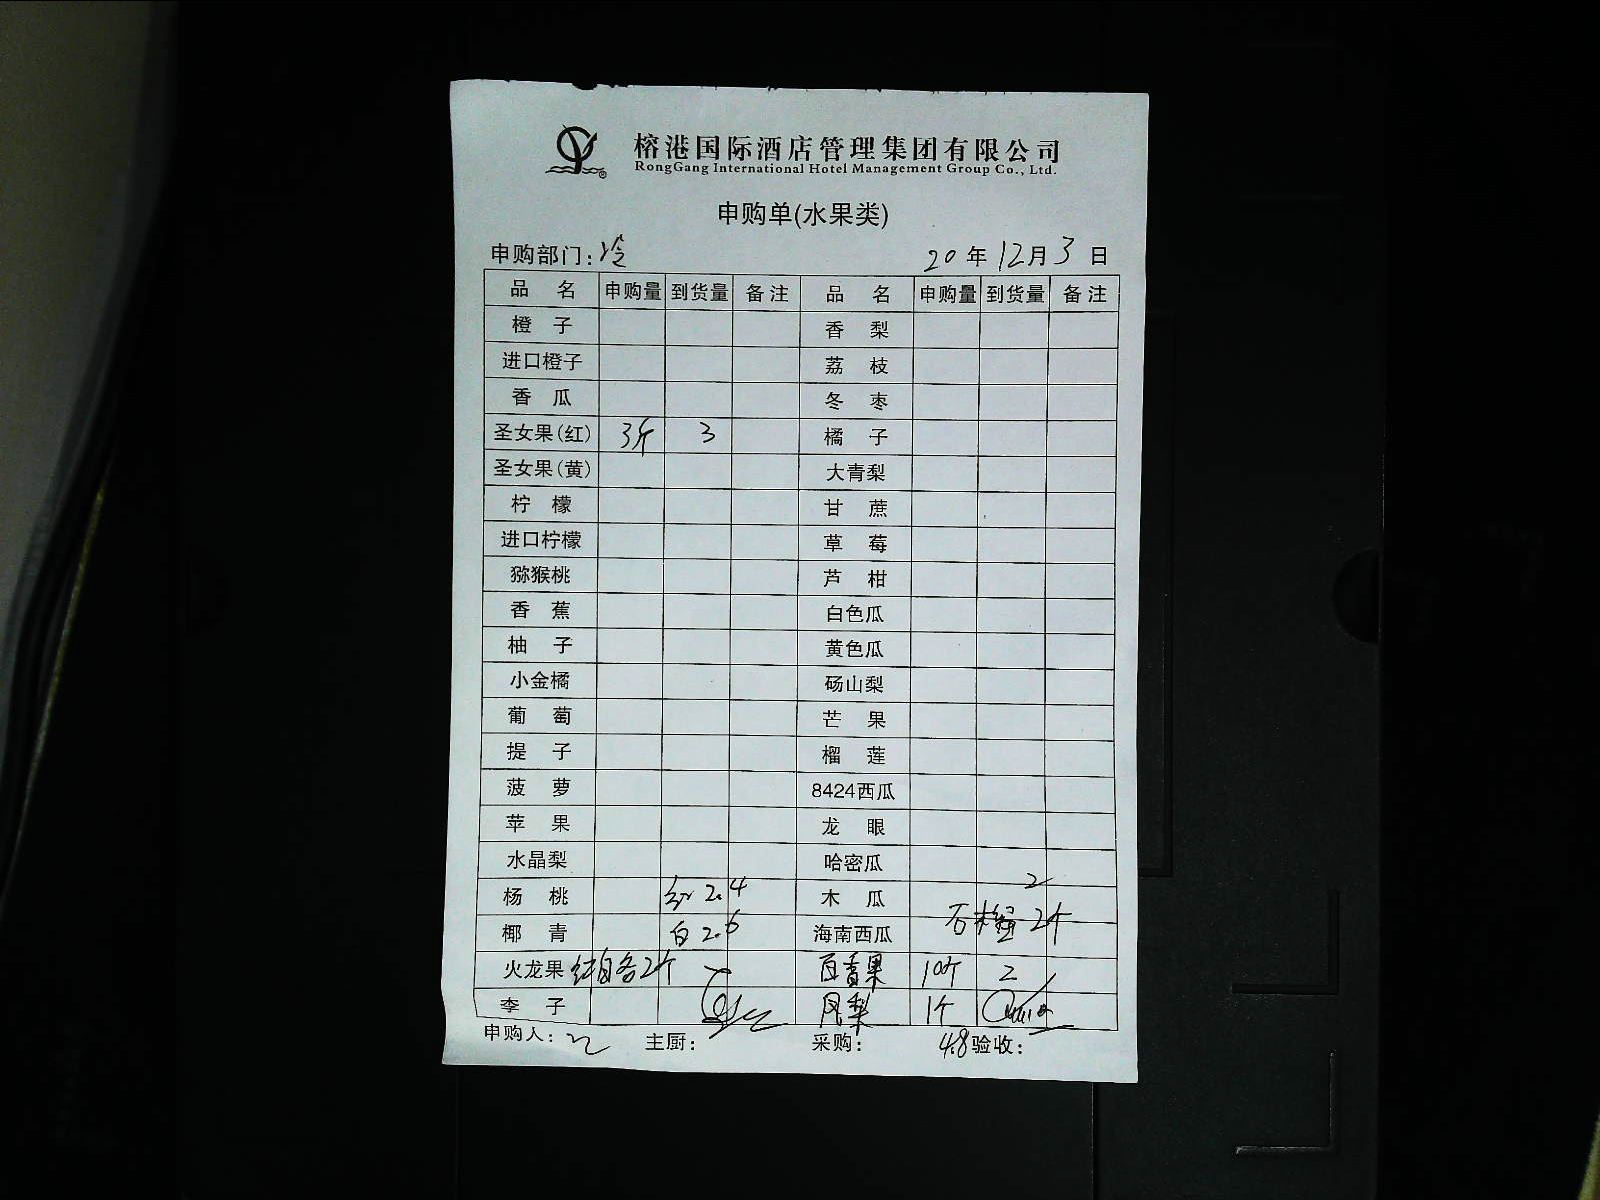 榕港国际酒店管理集团有限公司
RongGang International Hotel Management Group Co., Ltd.
申购单(水果类)
申购部门: 冷 20年12月3日
品 名 申购量 到货量 备注 品 名 申购量 到货量 备注
橙 子 香 梨
进口橙子 荔 枝
香 瓜 冬 枣
圣女果(红) 3斤 3 橘 子
圣女果(黄) 大青梨
柠 檬 甘 蔗
进口柠檬 草 莓
猕猴桃 芦 柑
香 蕉 白色瓜
柚 子 黄色瓜
小金橘 砀山梨
葡 萄 芒 果
提 子 榴 莲
菠 萝 8424西瓜
苹 果 龙 眼
水晶梨 哈密瓜
杨 桃 红 2.4 木 瓜 2
椰 青 白 2.6 海南西瓜 石榴 2个
火龙果 红白各2个 百香果 10个 2
李 子 凤梨 1个
申购人: 主厨: 采购: 4.8 验收: